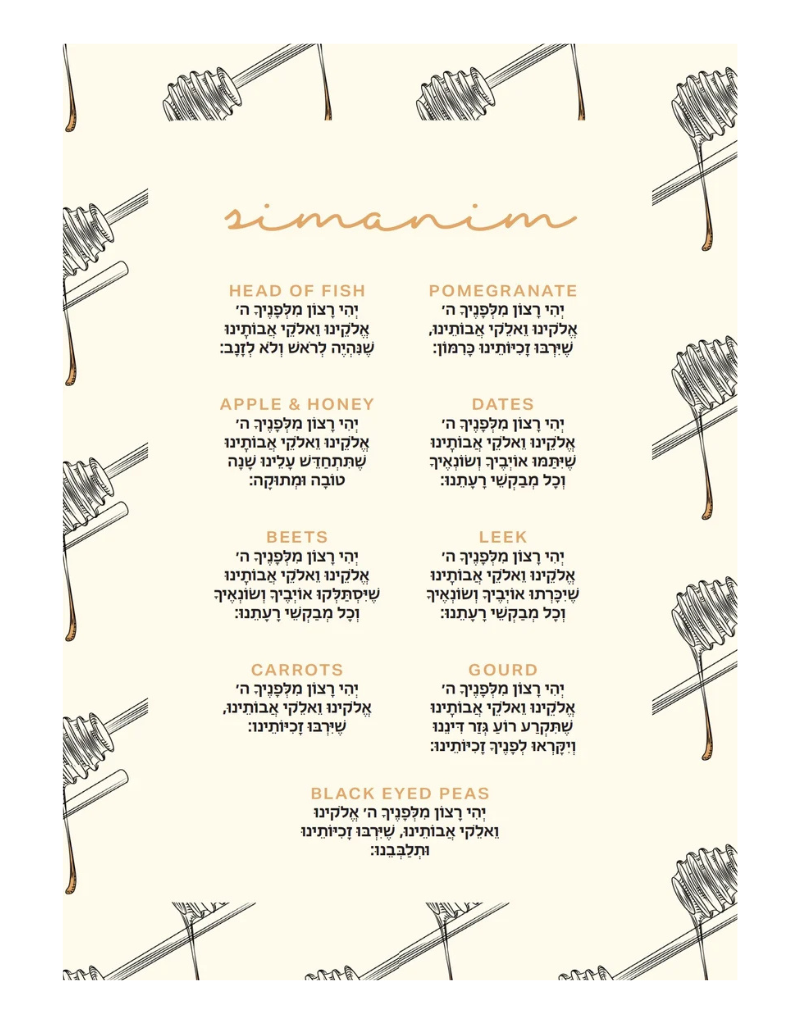 simanim
HEAD OF FISH
יְהִי רָצוֹן מִלְּפָנֶיךָ ה׳
אֱלֹקֵינוּ וֵאלֹקֵי אֲבוֹתָינוּ
שֶׁנִּהְיֶה לְרֹאשׁ וְלֹא לְזָנָב:
POMEGRANATE
יְהִי רָצוֹן מִלְּפָנֶיךָ ה׳
אֱלֹקינוּ וֵאלֹקי אֲבוֹתֵינוּ,
שֶׁיִּרְבּוּ זָכִיּוֹתֵינוּ כָּרִמּוֹן:
APPLE & HONEY
יְהִי רָצוֹן מִלְּפָנֶיךָ ה׳
אֱלֹקֵינוּ וֵאלֹקֵי אֲבוֹתָינוּ
שֶׁתִּתְחַדֵּשׁ עָלֵינוּ שָׁנָה
טוֹבָה וּמְתוּקָה:
DATES
יְהִי רָצוֹן מִלְּפָנֶיךָ ה׳
אֱלֹקֵינוּ וֵאלֹקֵי אֲבוֹתָינוּ
שֶׁיִּתַּמּוּ אוֹיְבֶיךָ וְשׂוֹנְאֶיךָ
וְכָל מְבַקְשֵׁי רָעָתֵנוּ:
BEETS
יְהִי רָצוֹן מִלְּפָנֶיךָ ה׳
אֱלֹקֵינוּ וֵאלֹקֵי אֲבוֹתָינוּ
שֶׁיִּסְתַּלְּקוּ אוֹיְבֶיךָ וְשׂוֹנְאֶיךָ
וְכָל מְבַקְשֵׁי רָעָתֵנוּ:
LEEK
יְהִי רָצוֹן מִלְּפָנֶיךָ ה׳
אֱלֹקֵינוּ וֵאלֹקֵי אֲבוֹתָינוּ
שֶׁיִּכָּרְתוּ אוֹיְבֶיךָ וְשׂוֹנְאֶיךָ
וְכָל מְבַקְשֵׁי רָעָתֵנוּ:
CARROTS
יְהִי רָצוֹן מִלְּפָנֶיךָ ה׳
אֱלֹקינוּ וֵאלֹקי אֲבוֹתֵינוּ,
שֶׁיִּרְבּוּ זָכִיּוֹתֵינוּ:
GOURD
יְהִי רָצוֹן מִלְּפָנֶיךָ ה׳
אֱלֹקֵינוּ וֵאלֹקֵי אֲבוֹתָינוּ
שֶׁתִּקְרַע רוֹעַ גְּזַר דִּינֵנוּ
וְיִקָּרְאוּ לְפָנֶיךָ זָכִיּוֹתֵינוּ:
BLACK EYED PEAS
יְהִי רָצוֹן מִלְּפָנֶיךָ ה׳ אֱלֹקינוּ
וֵאלֹקי אֲבוֹתֵינוּ, שֶׁיִּרְבּוּ זָכִיּוֹתֵינוּ
וּתְלַבְּבֵנוּ: